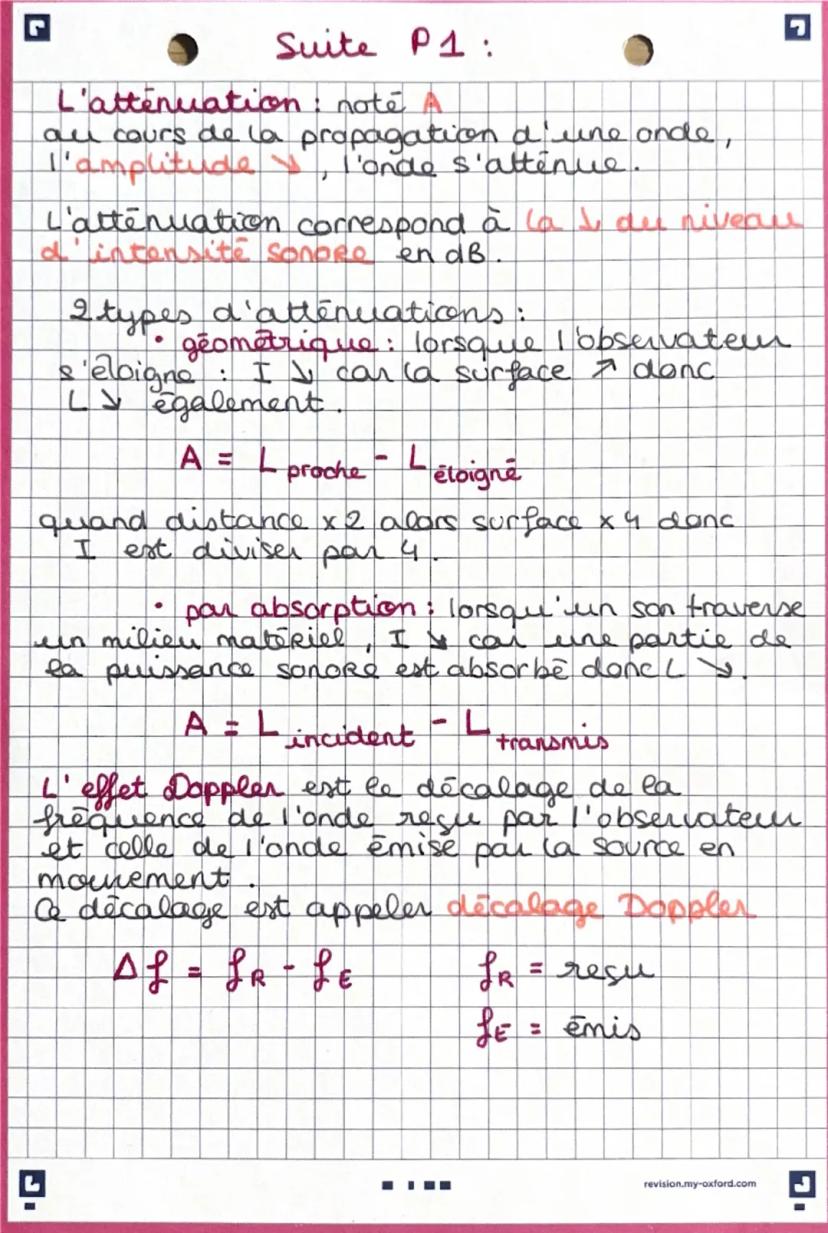 Suite P1 :
L'atténuation : noté A
au cours de la propagation d'une onde,
l'amplitude ↘, l'onde s'atténue.
L'atténuation correspond à la ↘ du niveau
d'intensité sonore en dB.
2 types d'atténuations :
• géométrique : lorsque l'observateur
s'éloigne : I ↘ car la surface ↗ donc
L ↘ également.
A = L proche - L éloigné
quand distance x2 alors surface x4 donc
I est diviser par 4.
• par absorption : lorsqu'un son traverse
un milieu matériel, I ↘ car une partie de
la puissance sonore est absorbé donc L ↘.
A = L incident - L transmis
L'effet Doppler est le décalage de la
fréquence de l'onde reçu par l'observateur
et celle de l'onde émise par la source en
mouvement.
Ce décalage est appeler décalage Doppler
Δf = fR - fE
fR = reçu
fE = émis
revision.my-oxford.com